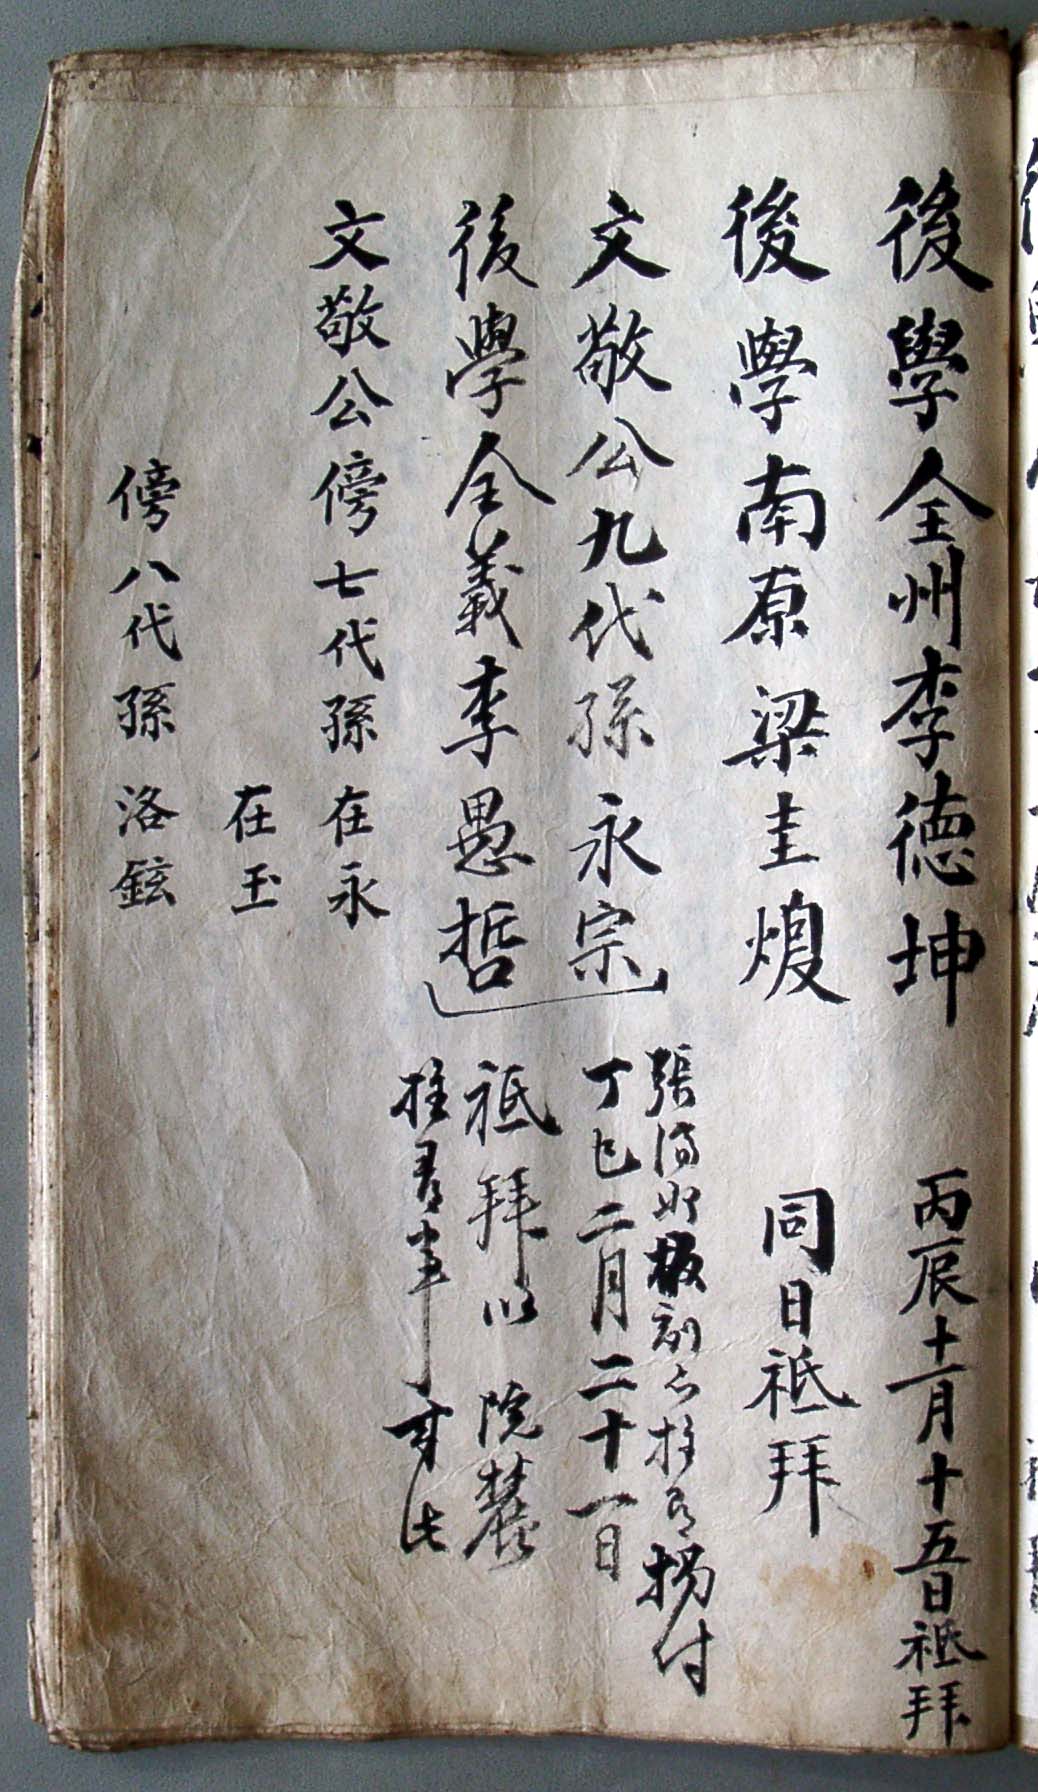 後學全州李德坤 丙辰十一月十五日祗拜
後學南原梁圭煥 同日祗拜
文敬公九代孫永宗
後學全義李愚哲
張 板刻 付
丁巳二月二十一日
祗拜以 院
文敬公傍七代孫在永
在玉
傍八代孫洛鉉